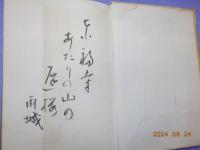 東福寺
あたりの山の
遅桜
雨城
2024.08.24